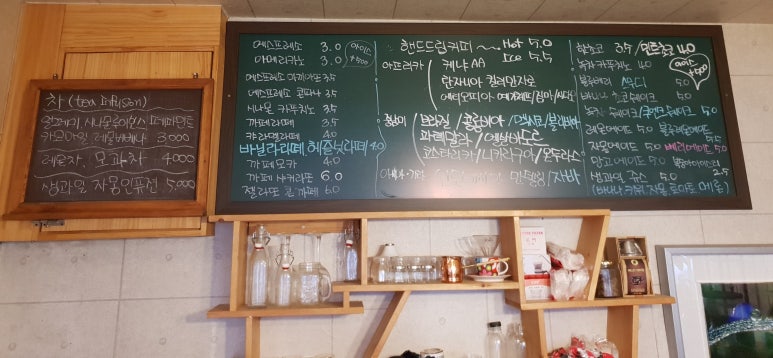 차 (tea Infusion)
얼그레이 시나몬 페퍼민트
카모마일 레몬버베나 3,000
레몬차, 모과차 4000
생과일 자몽인퓨전 5,000
에스프레소 3.0
아메리카노 3.0
아이스 +500
에스프레소 마끼아또 3.5
에스프레소 콘파나 3.5
시나몬 카푸치노 3.5
까페라떼 3.5
캬라멜라떼 4.0
바닐라라떼, 헤즐넛라떼 4.0
까페모카 4.0
까페 샤커라또 6.0
젤라또 콘 까페 6.0
핸드드립커피 ~ Hot 5.0
Ice 5.5
아프리카 / 케냐 AA
탄자니아 킬리만자로
에티오피아 예가체프/짐마/시다모
중남미 / 브라질 / 콜롬비아 / 멕시코/볼리비아
과테말라 / 엘살바도르
코스타리카 / 니카라구아 / 온두라스
만델링 / 자바
핫초코 3.5 / 민트초코 4.0
녹차 카푸치노 4.0
아이스 +500
블루베리 스무디 5.0
바나나 초코쉐이크 5.0
녹차 쉐이크 / 쿠앤크쉐이크 5.0
레몬에이드 5.0 블루레몬에이드
자몽에이드 5.0 체리에이드 5.0
망고에이드 5.0
생과일 쥬스 5.0
2.5
(바나나, 키위, 자몽, 토마토